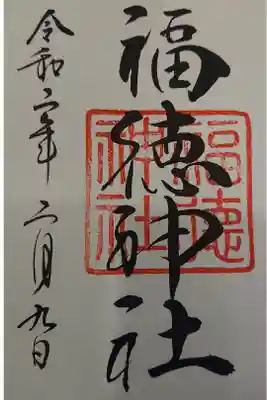 福徳神社
福徳神社
令和二年二月九日